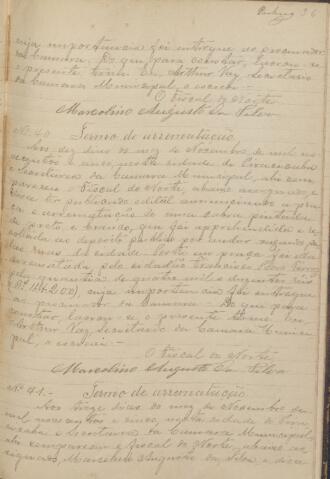 cuja importancia foi entregue ao procurador
da Camara. Do que para constar, lavrou-se
o presente termo. Eu, Arthur Vaz, Secretario
da Camara Municipal, o escrevi.
O Fiscal do Norte
Marcolino Augusto da Silva
Nº 40 Termo de arrematação
Aos dez dias do mez de Novembro de mil no-
vecentos e cinco, nesta cidade de
e Secretaria da Camara Municipal, ahi com-
pareceu o Fiscal do Norte, abaixo assignado, e
disse ter publicado edital annunciando a pra-
ça e arrematação de uma cabra pintada
de preto e branco, que foi apprehendida e re-
colhida ao deposito publico por andar vagando pe-
las ruas da cidade. Posta em praça foi ella
arrematada pelo cidadão Francisco
pela quantia de quatro mil e duzentos reis
(Rs. 4$200), cuja importancia foi entregue
ao procurador da Camara. Do que para
constar, lavrou-se o presente termo. Eu,
Arthur Vaz, Secretario da Camara Munici-
pal, o escrevi.
O Fiscal do Norte
Marcolino Augusto da Silva
Nº 41.- Termo de arrematação
Aos treze dias do mez de Novembro de
mil novecentos e cinco, nesta cidade de
e Secretaria da Camara Municipal,
ahi compareceu o Fiscal do Norte, abaixo as-
signado, Marcolino Augusto da Silva, e disse